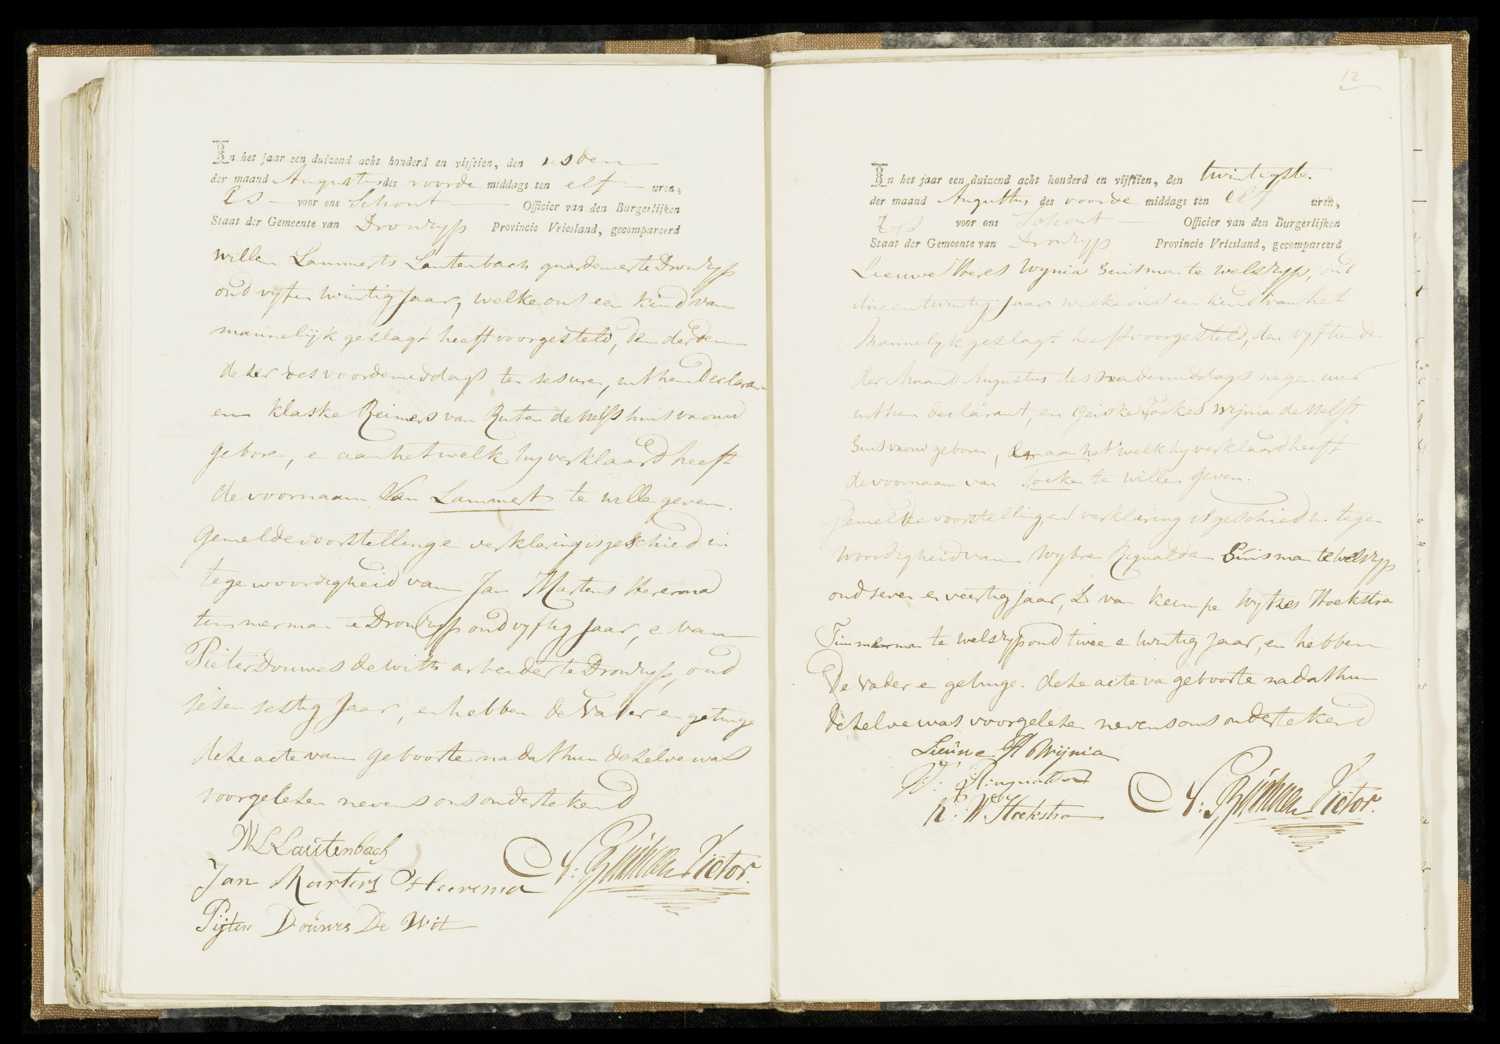 In het jaar een duizend acht honderd en vijftien, den
der maand Augustus des voorde middags ten elf uren,
Es voor ons Schout Officier van den Burgerlijken
Staat der Gemeente van Dronryp Provincie Vriesland, gecompareerd
Willem Lammerts Lautenbach te Dronryp
oud vyf en twintig Jaar, welke ons een kind van
mannelijk geslagt heeft voorgesteld, den dertien
deser des voordemiddags ten ses uren, uit hem Declarant
en Klaske Reiners van Ruten deszelfs huisvrouw
geboren, en aan het welk hy verklaard heeft
de voornaam van Lammert te wille geven.
Gemelde voorstelling en verklaring is geschied in
tegewoordigheid van Jan Martens Heerema
timmerman te Dronryp oud vyftig Jaar, en van
Pieter Douwes de Witt arbeider te Dronryp, oud
sesen sestig Jaar, en hebben de Vader en getuige
deze acte van geboorte na dat hun dezelve was
voorgelezen nevens ons ondertekend
W L Lautenbach
Jan Martens Heerema
Pijter Douwes De Wit
Victor.
12
In het jaar een duizend acht honderd en vijftien, den twintigste
der maand Augustus des voorde middags ten elf uren,
voor ons Schout Officier van den Burgerlijken
Staat der Gemeente van Dronryp Provincie Vriesland, gecompareerd
Lieuwe Wynia huisman te Welsryp, oud
drie en twintig Jaar welke ons een kind van het
Mannelyk geslagt heeft voorgesteld, den vyftiende
der Maand Augustus des voordemiddags negen uur
uit hem declarant, en Geiske Fookes Wijnia deszelfs
huisvrouw geboren, en aan het welk hy verklaard heeft
de voornaam van Foeke te willen geven.
Gemelde voorstelling en verklaring is geschied in tegen
woordigheid van Wybren Ringnalda huisman te Welsryp
oud seven en veertig jaar, en van Kempe Wytzes Hoekstra
Timmerman te Welsryp oud twee en twintig Jaar, en hebben
De Vader en getuige deze acte van geboorte na dat hun
dezelve was voorgelezen nevens ons ondertekend
Lieuwe H Wijnia
K: W. Hoekstra
Victor.